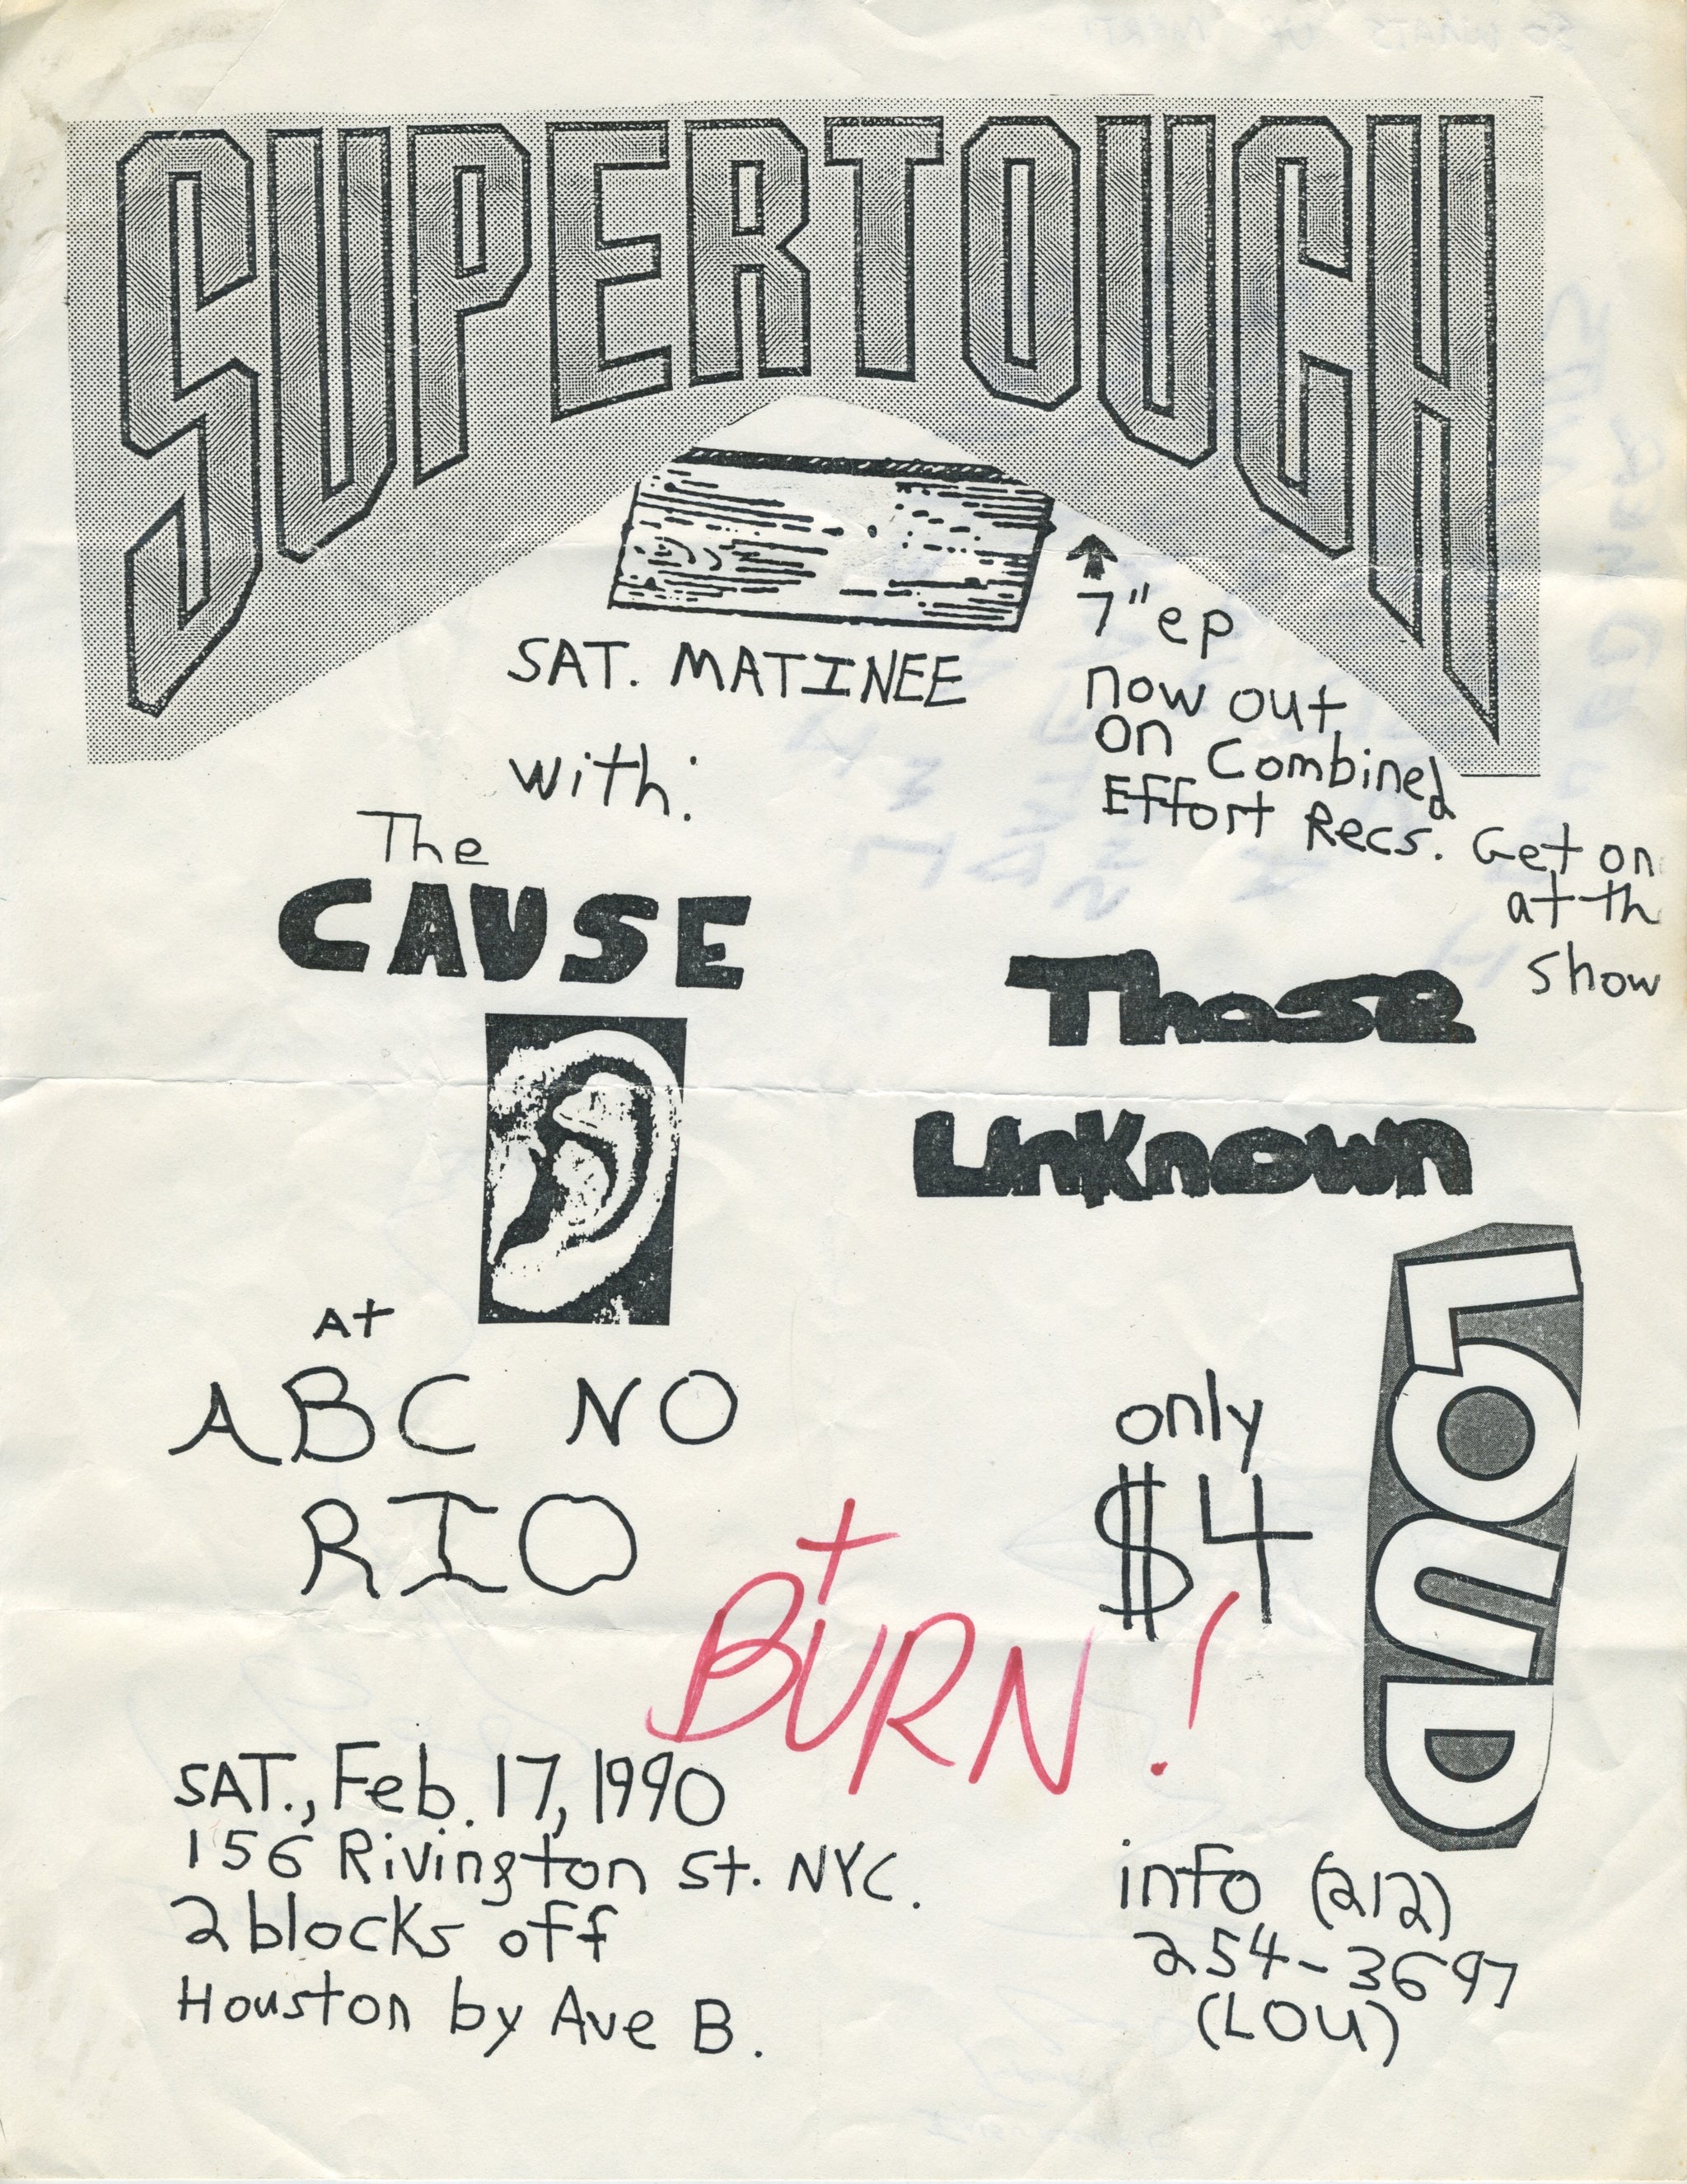 SUPERTOUCH
7" ep
now out
on Combined
Effort Recs. Get on
at th
show
SAT. MATINEE
with:
The
CAUSE
Those
Unknown
At
ABC NO
RIO
only
$4
LOUD
+
BURN!
SAT., Feb. 17, 1990
156 Rivington St. NYC.
2 blocks off
Houston by Ave B.
info (212)
254-3697
(LOU)